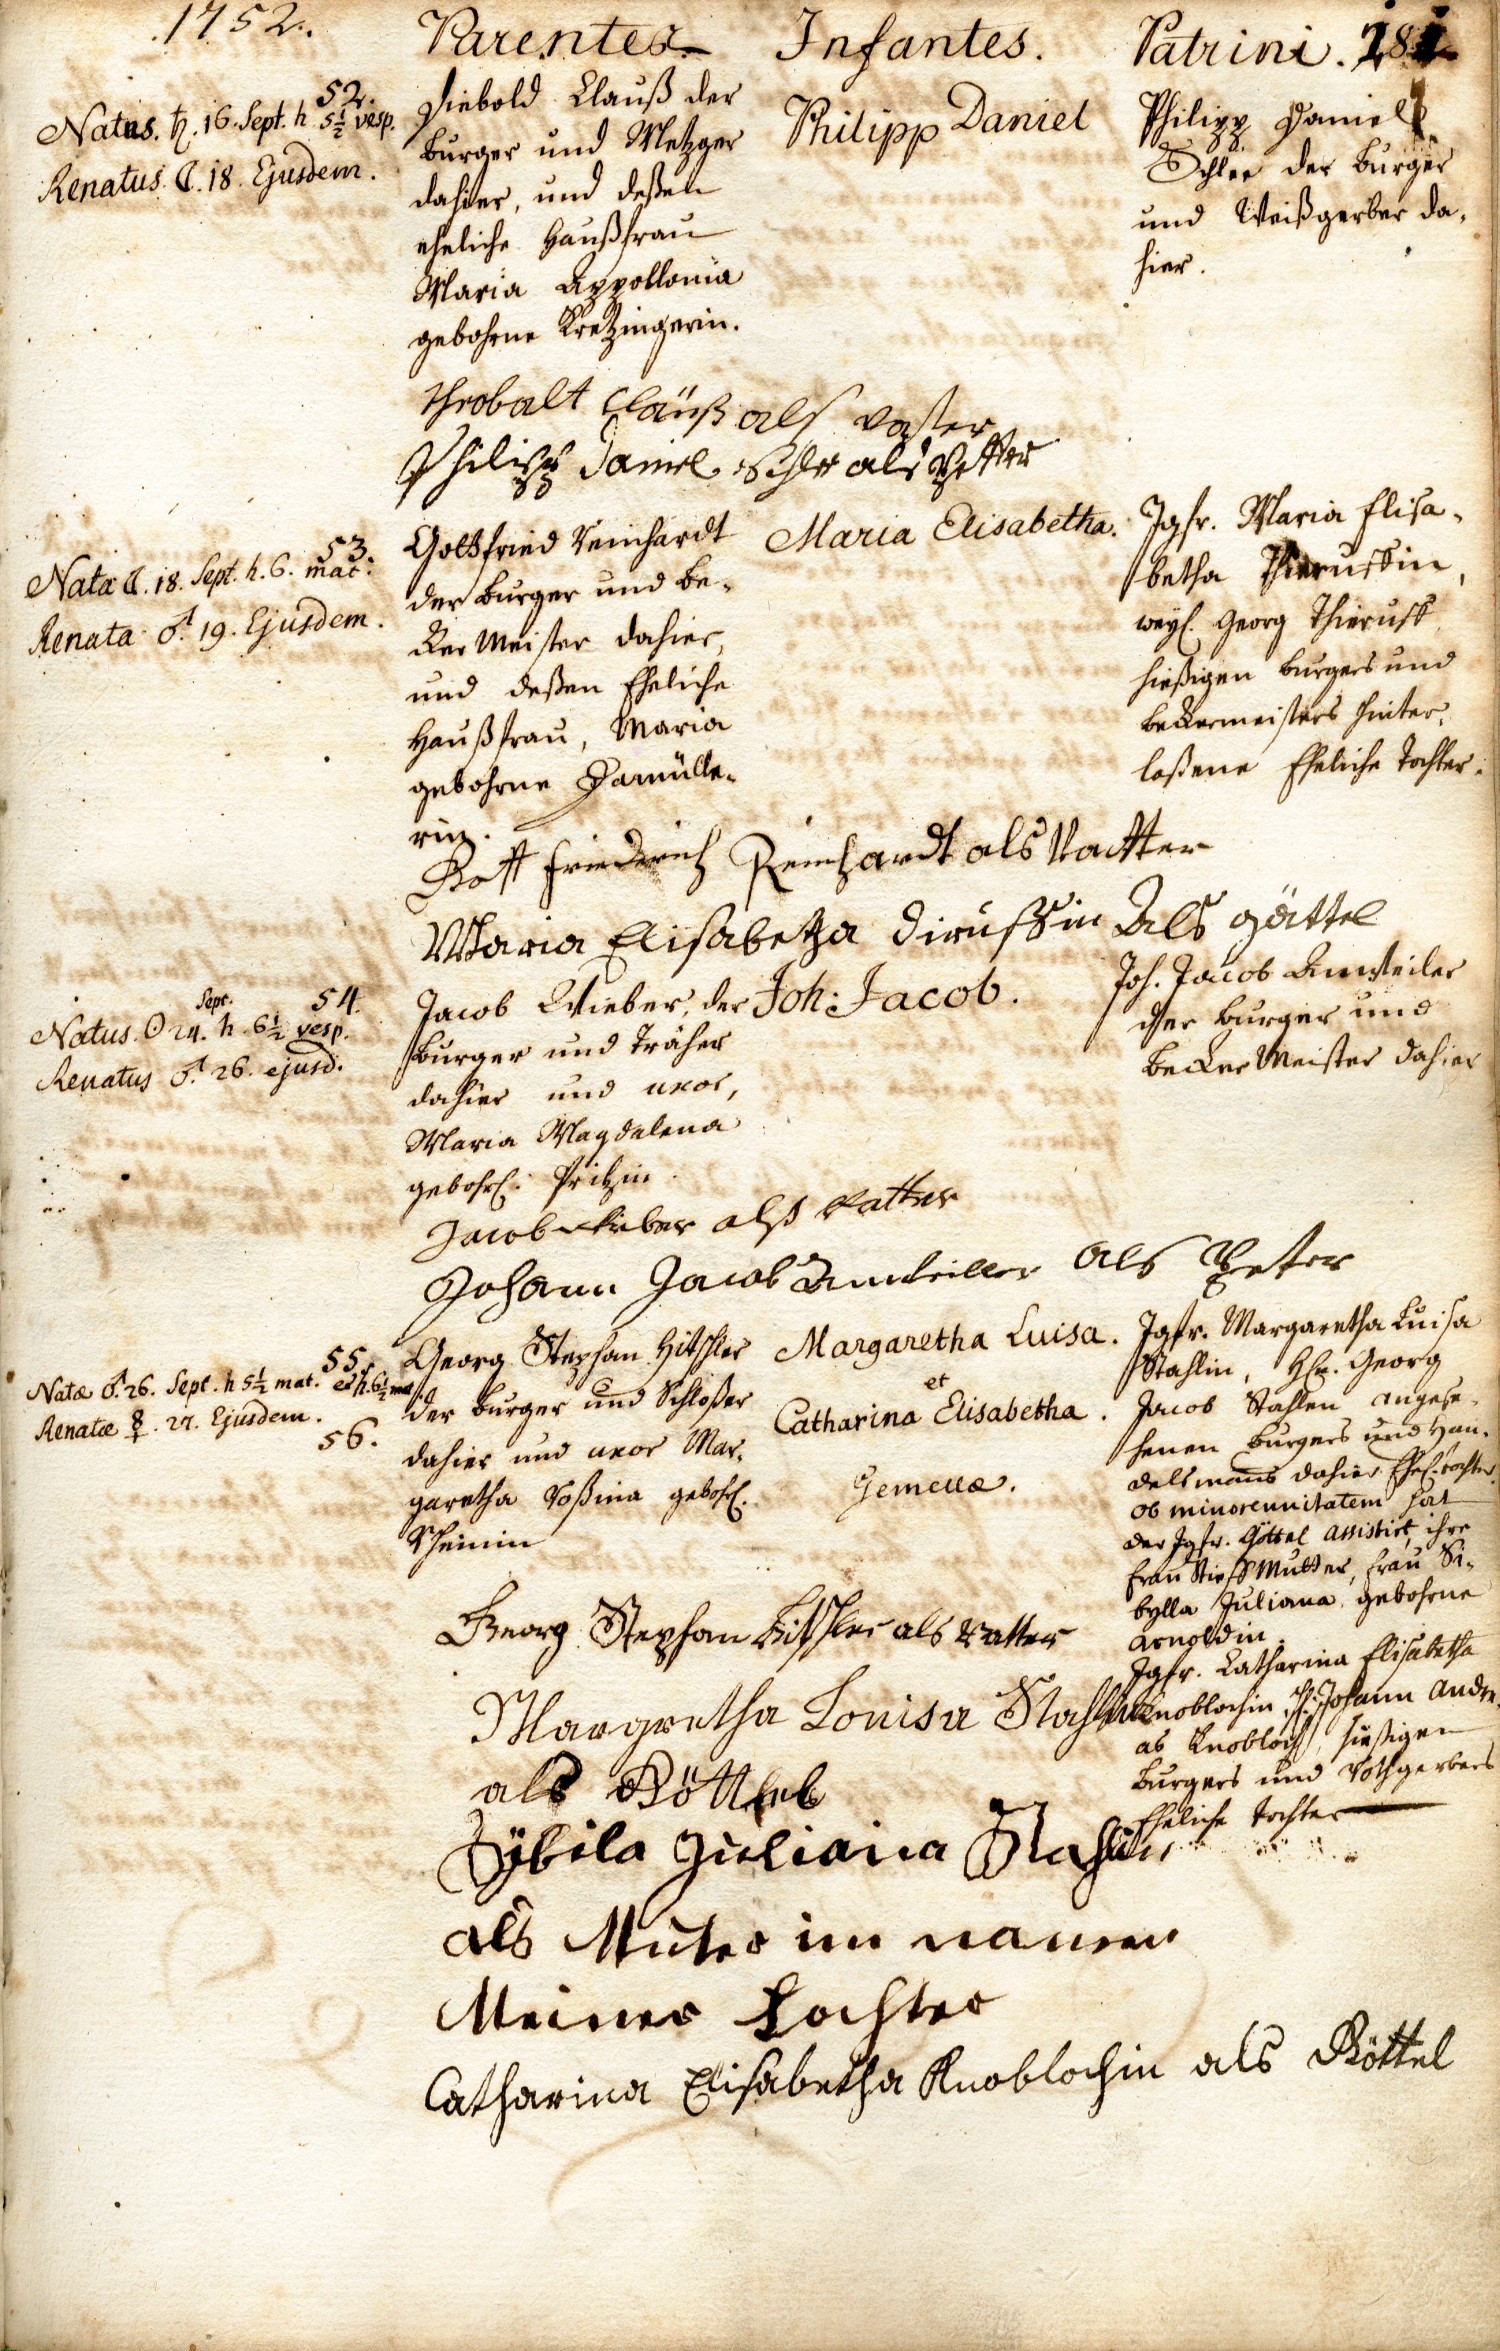 1752.
Parentes
Infantes.
Patrini. 181
52.
Natus. ♄. 16. Sept. h 5½ vesp.
Renatus ☾. 18. Ejusdem.
Diebold Clauß der
burger und Metzger
dahier, und deßen
eheliche Haußfrau
Maria Appollonia
gebohrne Kretzingerin.
Philipp Daniel
Philipp Daniel
Schlee der burger
und Weißgerber da-
hier.
Theobalt Clauß als vatter
Philipp Daniel Schlee als Petter
53.
Nata ☾. 18. Sept. h. 6. mat:
Renata ♂. 19. Ejusdem.
Gottfried Reinhardt
der burger und be-
cker Meister dahier,
und deßen Eheliche
Haußfrau, Maria
gebohrne Damülle-
rin.
Maria Elisabetha.
Jgfr. Maria Elisa-
betha Thierussin,
weyl. Georg Thieruss
hießigen burgers und
beckermeisters hinter-
laßene Eheliche Tochter.
Gottfriedrich Reinhardt als Vatter
Maria Elisabetha Dirussin Als göttel
54.
Sept.
Natus. ☉ 24. h. 6½ vesp.
Renatus ♂. 26. ejusd.
Jacob Wieber, der
burger und Träher
dahier und uxor,
Maria Magdalena
gebohrl. Pritzin.
Joh: Jacob.
Joh. Jacob Anweiler
der burger und
becker Meister dahier
Jacob Wieber alß Vatter
Johann Jacob Anweiller als Peter
55.
Natæ ♂. 26. Sept. h 5½ mat. et h. 6½ mat.
Renatæ ☿. 27. Ejusdem.
56.
Georg Stephan Hitschler
der burger und Schloßer
dahier und uxor Mar-
garetha Roßina gebohrl.
Rheinin
Margaretha Luisa.
et
Catharina Elisabetha.
Gemellæ.
Jgfr. Margaretha Luisa
Stahlin, Hln. Georg
Jacob Stahlen angese-
henen burgers und Han-
delsmanns dahier Ehel. tochter.
ob minorennitatem hat
der Jgfr. Göttel assistirt, ihre
Frau StiefMutter, Frau Si-
bylla Juliana, gebohrne
Arnoldin.
Jgfr. Catharina Elisabetha
Knoblochin, Johann Andre-
as Knobloch, hießigen
burgers und Rothgerbers
Eheliche tochter
Georg Stephan Hitschler als Vatter
Margretha Louisa Stahlin
als Göttel
Sÿbila Juliana Stahlin
als Muter im namen
Meiner Tochter
Catharina Elisabetha Knoblochin als Göttel